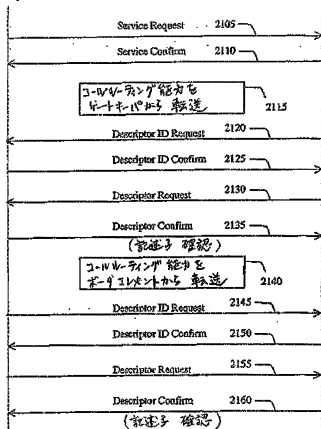 Service Request 2105
Service Confirm 2110
コールルーティング能力を
ゲートキーパから 転送
2115
Descriptor ID Request 2120
Descriptor ID Confirm 2125
Descriptor Request 2130
Descriptor Confirm 2135
(記述子 確認)
コールルーティング能力を
ボーダエレメントから 転送
2140
Descriptor ID Request 2145
Descriptor ID Confirm 2150
Descriptor Request 2155
Descriptor Confirm 2160
(記述子 確認)